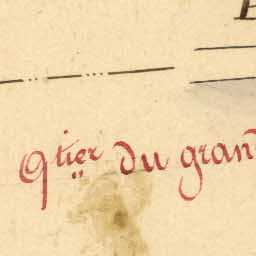 Qtier du gran